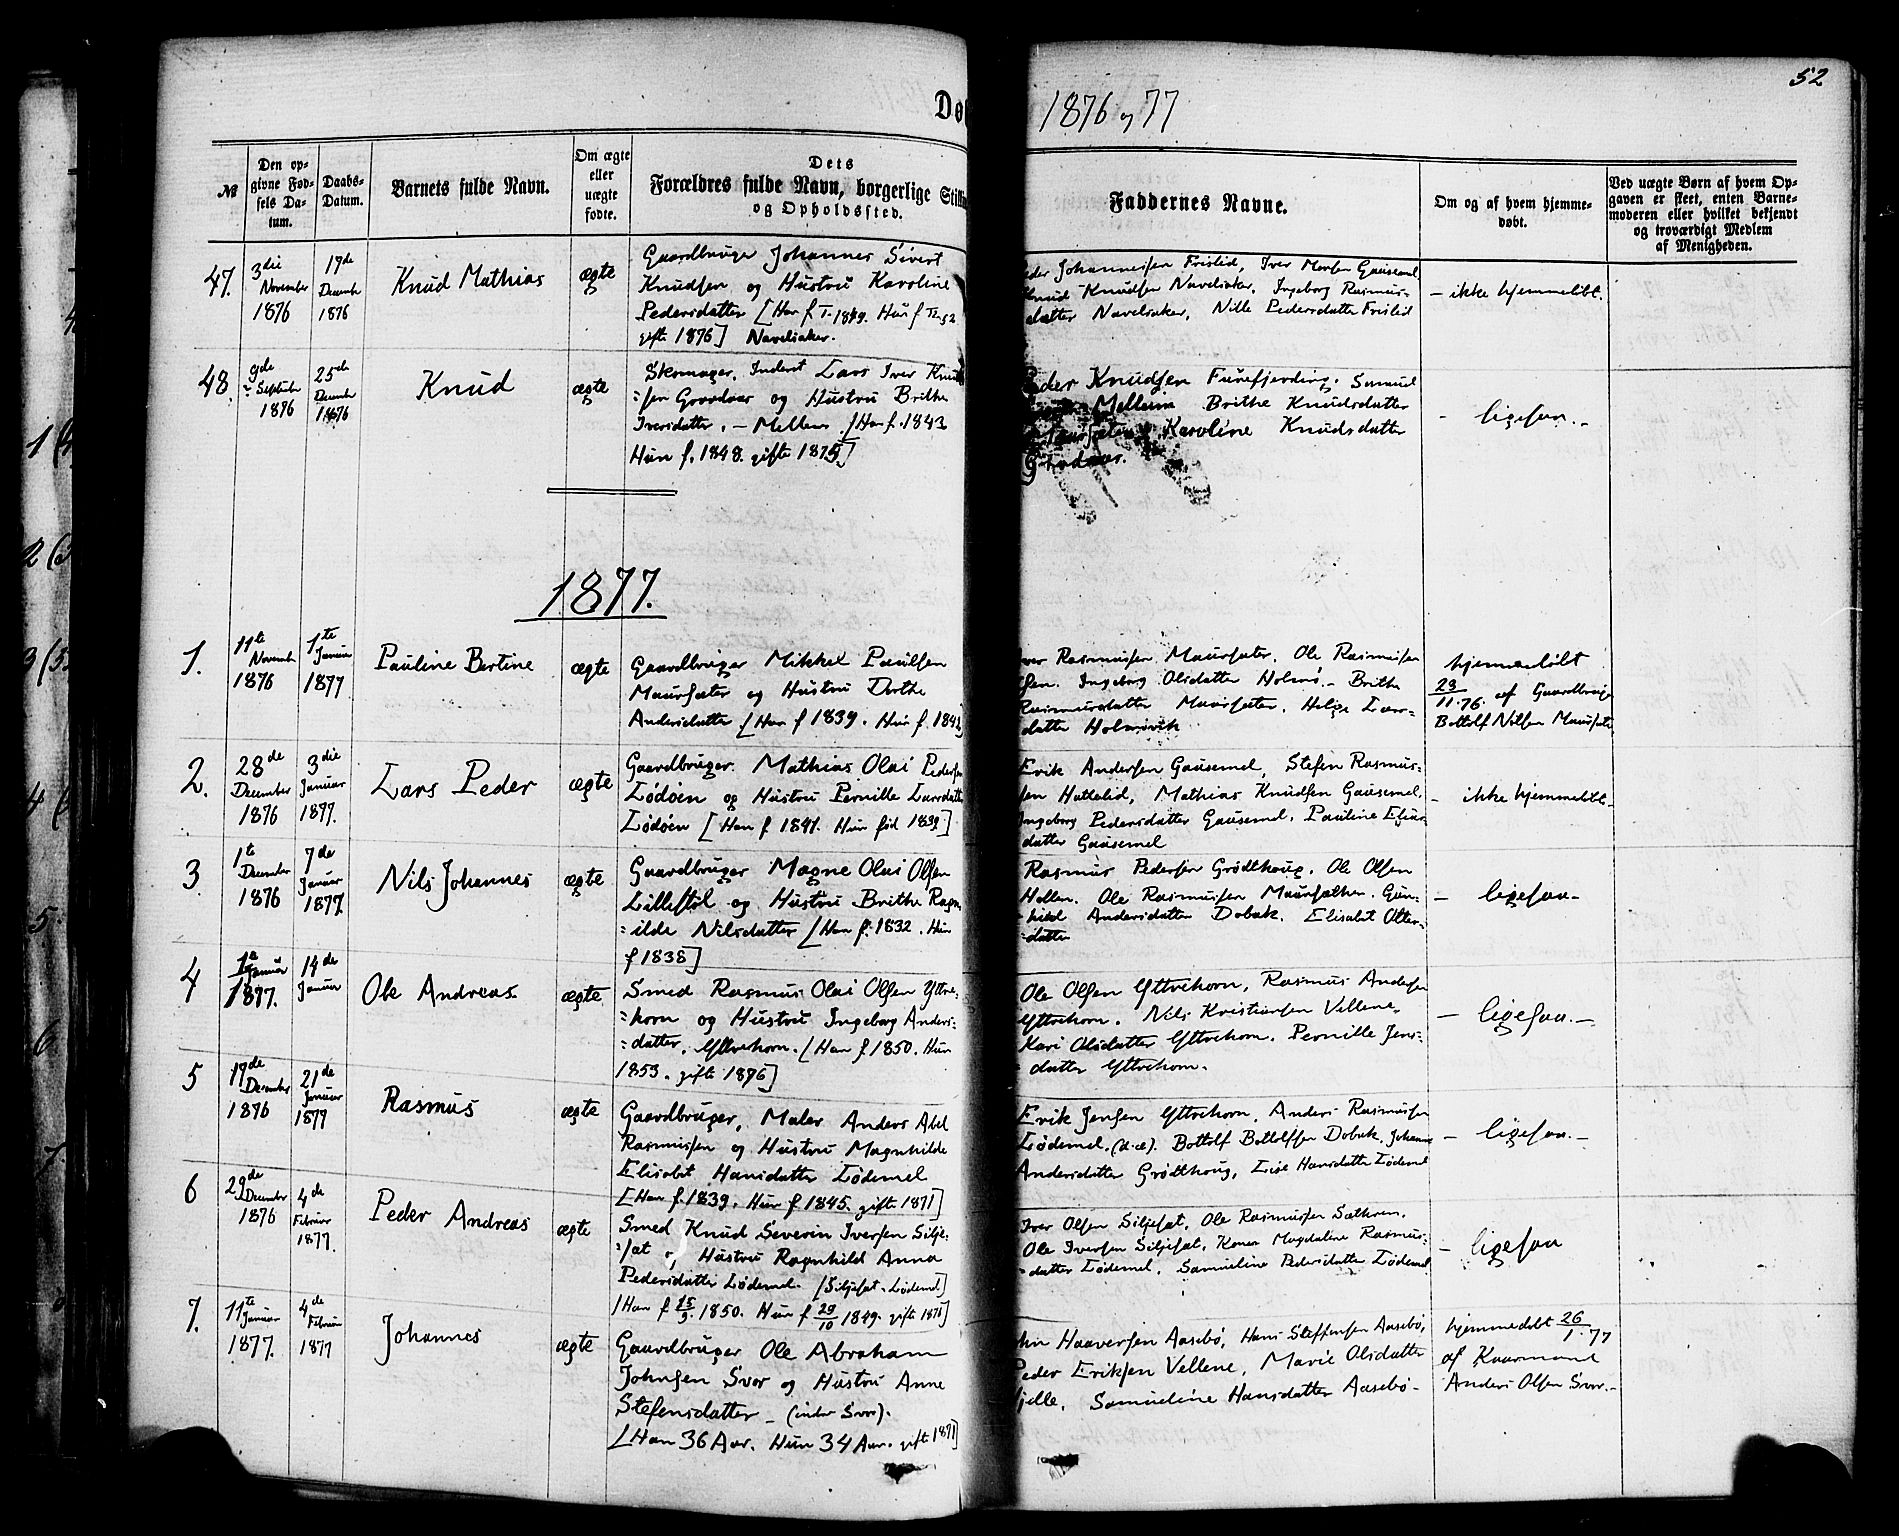 52
Dø
1876 og 77
№
Den op-
givne Fød-
sels Da-
tum.
Daabs-
Datum.
Barnets fulde Navn.
Om ægte
eller
uægte
fødte.
Dets
Forældres fulde Navn, borgerlige Stillin
og Opholdssted.
Faddernes Navne.
Om og af hvem hjemme-
døbt.
Ved uægte Børn af hvem Op-
gaven er skeet, enten Barne-
moderen eller hvilket bekjendt
og troværdigt Medlem
af Menigheden.
47.
3die
November
1876
17de
Decembr
1876
Knud Mathias
ægte
Gaardbruger Johannes Sivert
Knudsen og Hustru Karoline
Pedersdatter [Han f. 1849. Hun f.
gift 1876] Navelsaker.
eder Johannessen Frislid, Iver Monsen Gausemel
Knud Knudsen Navelsaker, Ingeborg Rasmus-
datter Navelsaker, Nille Pedersdatter Frislid
- ikke hjemmedøbt.
48.
9de
Septembr
1876
25de
Decembr
1876
Knud
ægte
Skomager, Inderst Lars Iver Knud
=sen Grodaas og Hustru Brithe
Iversdatter. - Mellem [Han f. 1843
Hun f. 1848. gifte 1875]
eder Knudsen Furefjerding. Samuel
Mellem Brithe Knudsdatter
Karoline Knudsdatter
Grodaas.
- ligesaa. -
1877.
1.
11te
Novembr
1876
1te
Januar
1877
Pauline Bertine
ægte
Gaardbruger Mikkel Paulsen
Maursæter og Hustru Dorthe
Andersdatter [Han f 1839. Hun f. 1842]
ver Rasmussen Maursæter. Ole Rasmussen
sen. Ingeborg Olsdatter Holmø. - Brithe
Rasmusdatter Maursæter. Helge Lars-
datter Holmøvik
hjemmedøbt
23/11.76. af Gaardbruger
Bottolf Nilsen Maursæte
2.
28de
December
1876
3die
Januar
1877.
Lars Peder
ægte
Gaardbruger. Mathias Olai Pedersen
Lødøen og Hustru Pernille Larsdatter
Lødøen [Han f. 1841. Hun fød 1839]
Erik Andersen Gausemel, Stefen Rasmus-
sen Hattelid, Mathias Knudsen Gausemel.
Ingeborg Pedersdatter Gausemel. Pauline Elias
datter Gausemel
- ikke hjemmedøbt -
3.
1te
December
1876
7de
Januar
1877.
Nils Johannes
ægte
Gaardbruger Magne Olai Olsen
Lillestøl og Hustru Brithe Ragn-
=ilde Nilsdatter [Han f. 1832. Hun
f 1838]
Rasmus Pedersen Grødthoug. Ole Olsen
Hollen. Ole Rasmussen Maursæther. Gun-
=hild Andersdatter Dobak. Elisabet Otter-
=datter
- ligesaa -
4
1te
Januar
1877.
14de
Januar
Ole Andreas
ægte
Smed Rasmus Olai Olsen Yttre-
=horn og Hustru Ingeborg Anders-
=datter, Yttrehorn. [Han f. 1850. Hun
1853. gifte 1876]
Ole Olsen Yttrehorn, Rasmus Andersen
Yttrehorn. Nils Kristiansen Vellene.
Kari Olsdatter Yttrehorn. Pernille Jens-
datter Yttrehorn.
- ligesaa. -
5
17de
December
1876
21de
Januar
1877
Rasmus
ægte
Gaardbruger, Maler Anders Abel
Rasmussen og Hustru Magnhilde
Elisabet Hansdatter Lødemel
[Han f. 1839. Hun f 1845. gifte 1871]
Erik Jensen Yttrehorn, Anders Rasmussen
Lødemel, (d.æ). Bottolf Bottolfsen Dobak, Johanne
Andersdatter Grødthoug, Lise Hansdatter Lødemel
- ligesaa. -
6
29de
December
1876
4de
Februar
1877.
Peder Andreas
ægte
Smed Knud Severin Iversen Silje-
=sæt og Hustru Ragnhild Anna
Pedersdatter Lødemel. [Siljesæt - Lødemel]
[Han f 15/9. 1850. Hun f 29/10 1849. gifte 1876]
Iver Olsen Siljesæt, Ole Rasmussen Sæthren.
Ole Iversen Siljesæt, Kone Magdaline Rasmus-
=datter Lødemel, Samueline Pedersdatter Lødemel
- ligesaa
7.
11te
Januar
1877.
4de
Februar
1877
Johannes
ægte
Gaardbruger Ole Abraham
Johnsen Svor og Hustru Anne
Stefensdatter - (indre Svor).
[Han 36 Aar. Hun 34 Aar. gift 1871]
ohn Haaversen Aasebø, Hans Steffensen Aasebø,
eder Eriksen Vellene, Marie Olsdatter
jelle, Samueline Hansdatter Aasebø -
hjemmedøbt 26/1.77
af Kaarmand
Anders Olsen Svor. -